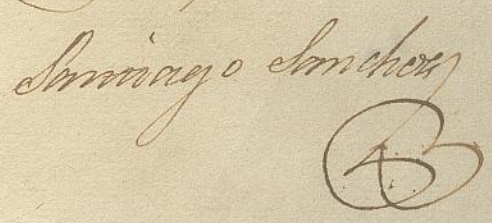 Santiago Sanchez